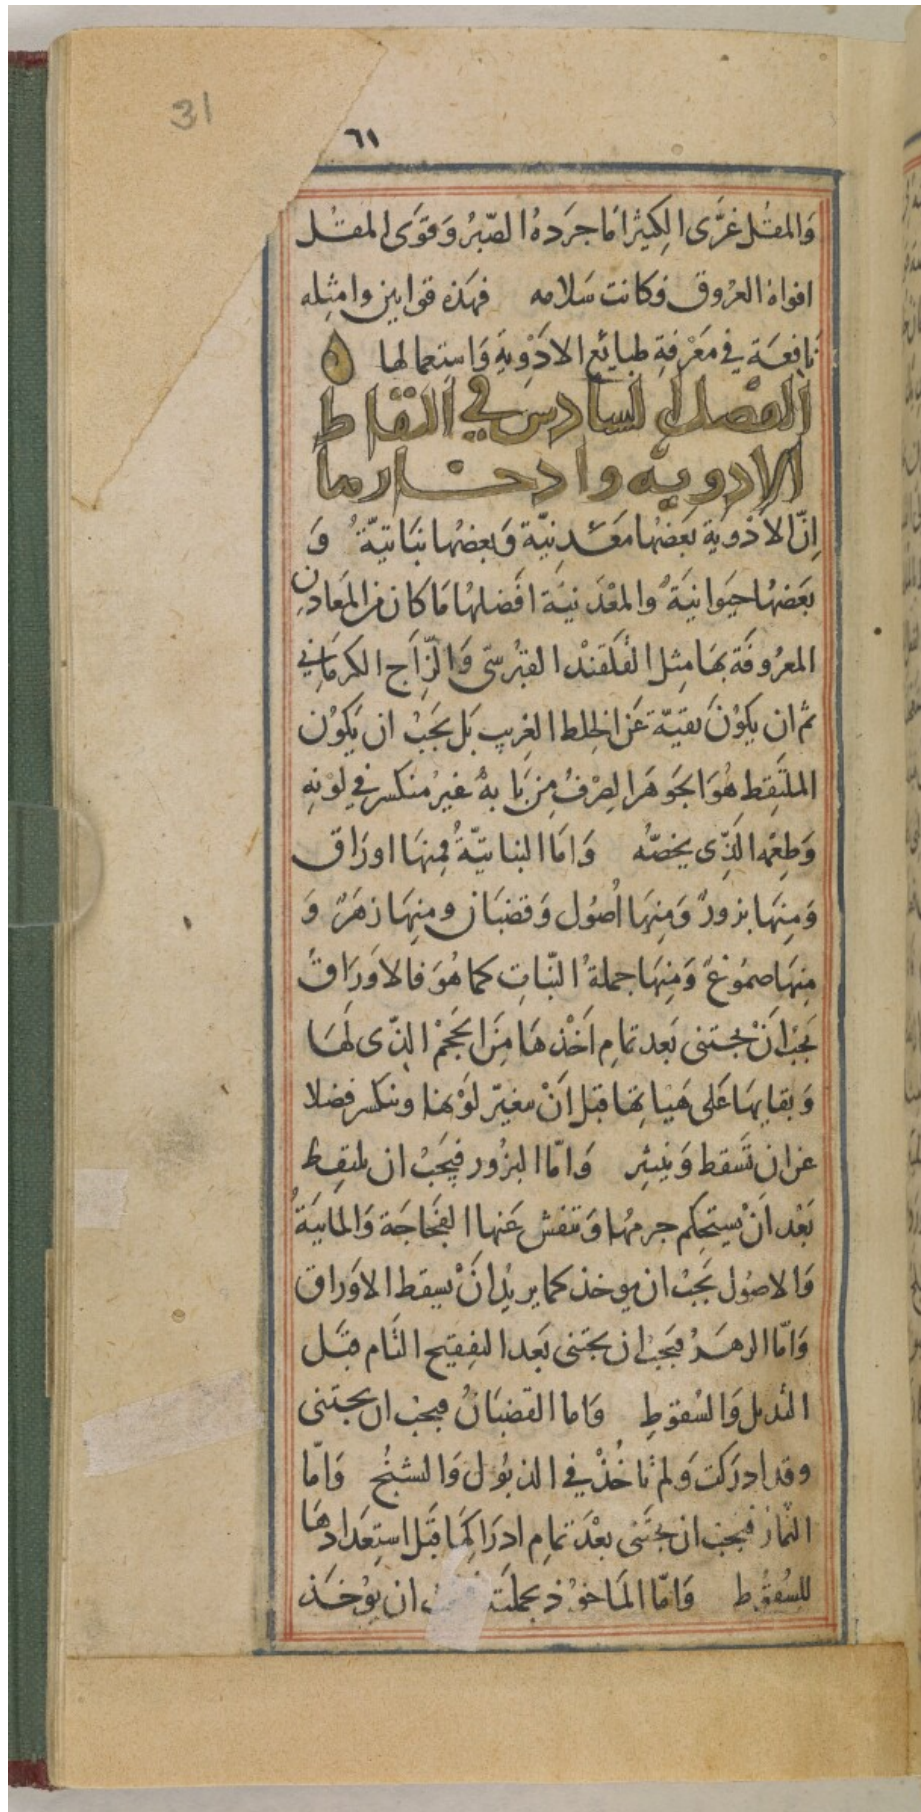 31
٦١
وَالمقُل غرَّى الكثيرا ما جرَده الصّبرُ وَقوَى المقُل
افواه العرُوق فكانت سَلامه فهَذه قوانين وامثِله
نَافِعَة في مَعْرفةِ طبائع الادَْوِيَةِ وَاستِعمالها ه
الفصل السادس في التقاط
الادوية وادخارها
اِنّ الاَدْوية بَعضهُا مَعْدِنيّة وَبعضهُا نبَاتيّةُ وَ
بَعَضهُا حيَوانيَةٌ والمعْدَنيَة افَضلهُا مَا كان مِن المعَادِن
المعرُوفَة بهَا مِثل القلقَندْ القبرُسىّ وَالزّاج الكرمَاني
ثم ان يكوُنَ نقيّة عَن الخِلط الغريب بَل يَجَبْ ان يَكوُن
الملتَقِط هُوَ الجَوهَر الصِرْفُ مِن بَابهْ غيرُ منكسر في لوْنهِ
وَطعِمْه الذّى يخصّه وَامَا النباتيّةُ فمِنهَا اورَاق
وَمِنهَا بزورٌ وَمِنهَا اُصوُل وَقضبَان ومنِهَا زهَرٌ وَ
مِنهَا صمُوغٌ وَمِنهَا جملةُ النّباتِ كما هُوَ فالاوَراقُ
يَجَبْ انَْ يجتنى بَعد تمامِ اَخْذهَا مِنَ الحَجمْ الذّى لهَا
وَبقايهَا عَلى هَياتِها قبَل اَنْ يتغيّر لوَنْها وينكسر فضلا
عن ان تسَقط وَينثِر وَامّا البزُور فيَجَبْ ان يلتقِط
بَعْد اَنْ يستحِكم جرمهُا وَتنفش عَنها الفجَاجَة وَالمائيَةُ
وَالاصوُل يَجَبْ ان يوخذ كما يريدُ اَنْ يسقط الاوَراق
وَامّا الزهَرُ فيَجَب ان يجتَنى بَعد التفِقيح التَام قبَل
التذبل وَالسُقوطِ وَاما القضبَانُ فيجبْ ان يجتنى
وقد ادرَكت وَلم تاخُذْ في الذبوُل وَالتشنجُ وَامّا
الثمارُ فيجبْ ان يجتَنى بعْدَ تمامِ ادرَاكهَا قبَل استِعَدادهَا
للسُقوُط وَامّا المَاخوُذ بجملَته ان يوُخَذ